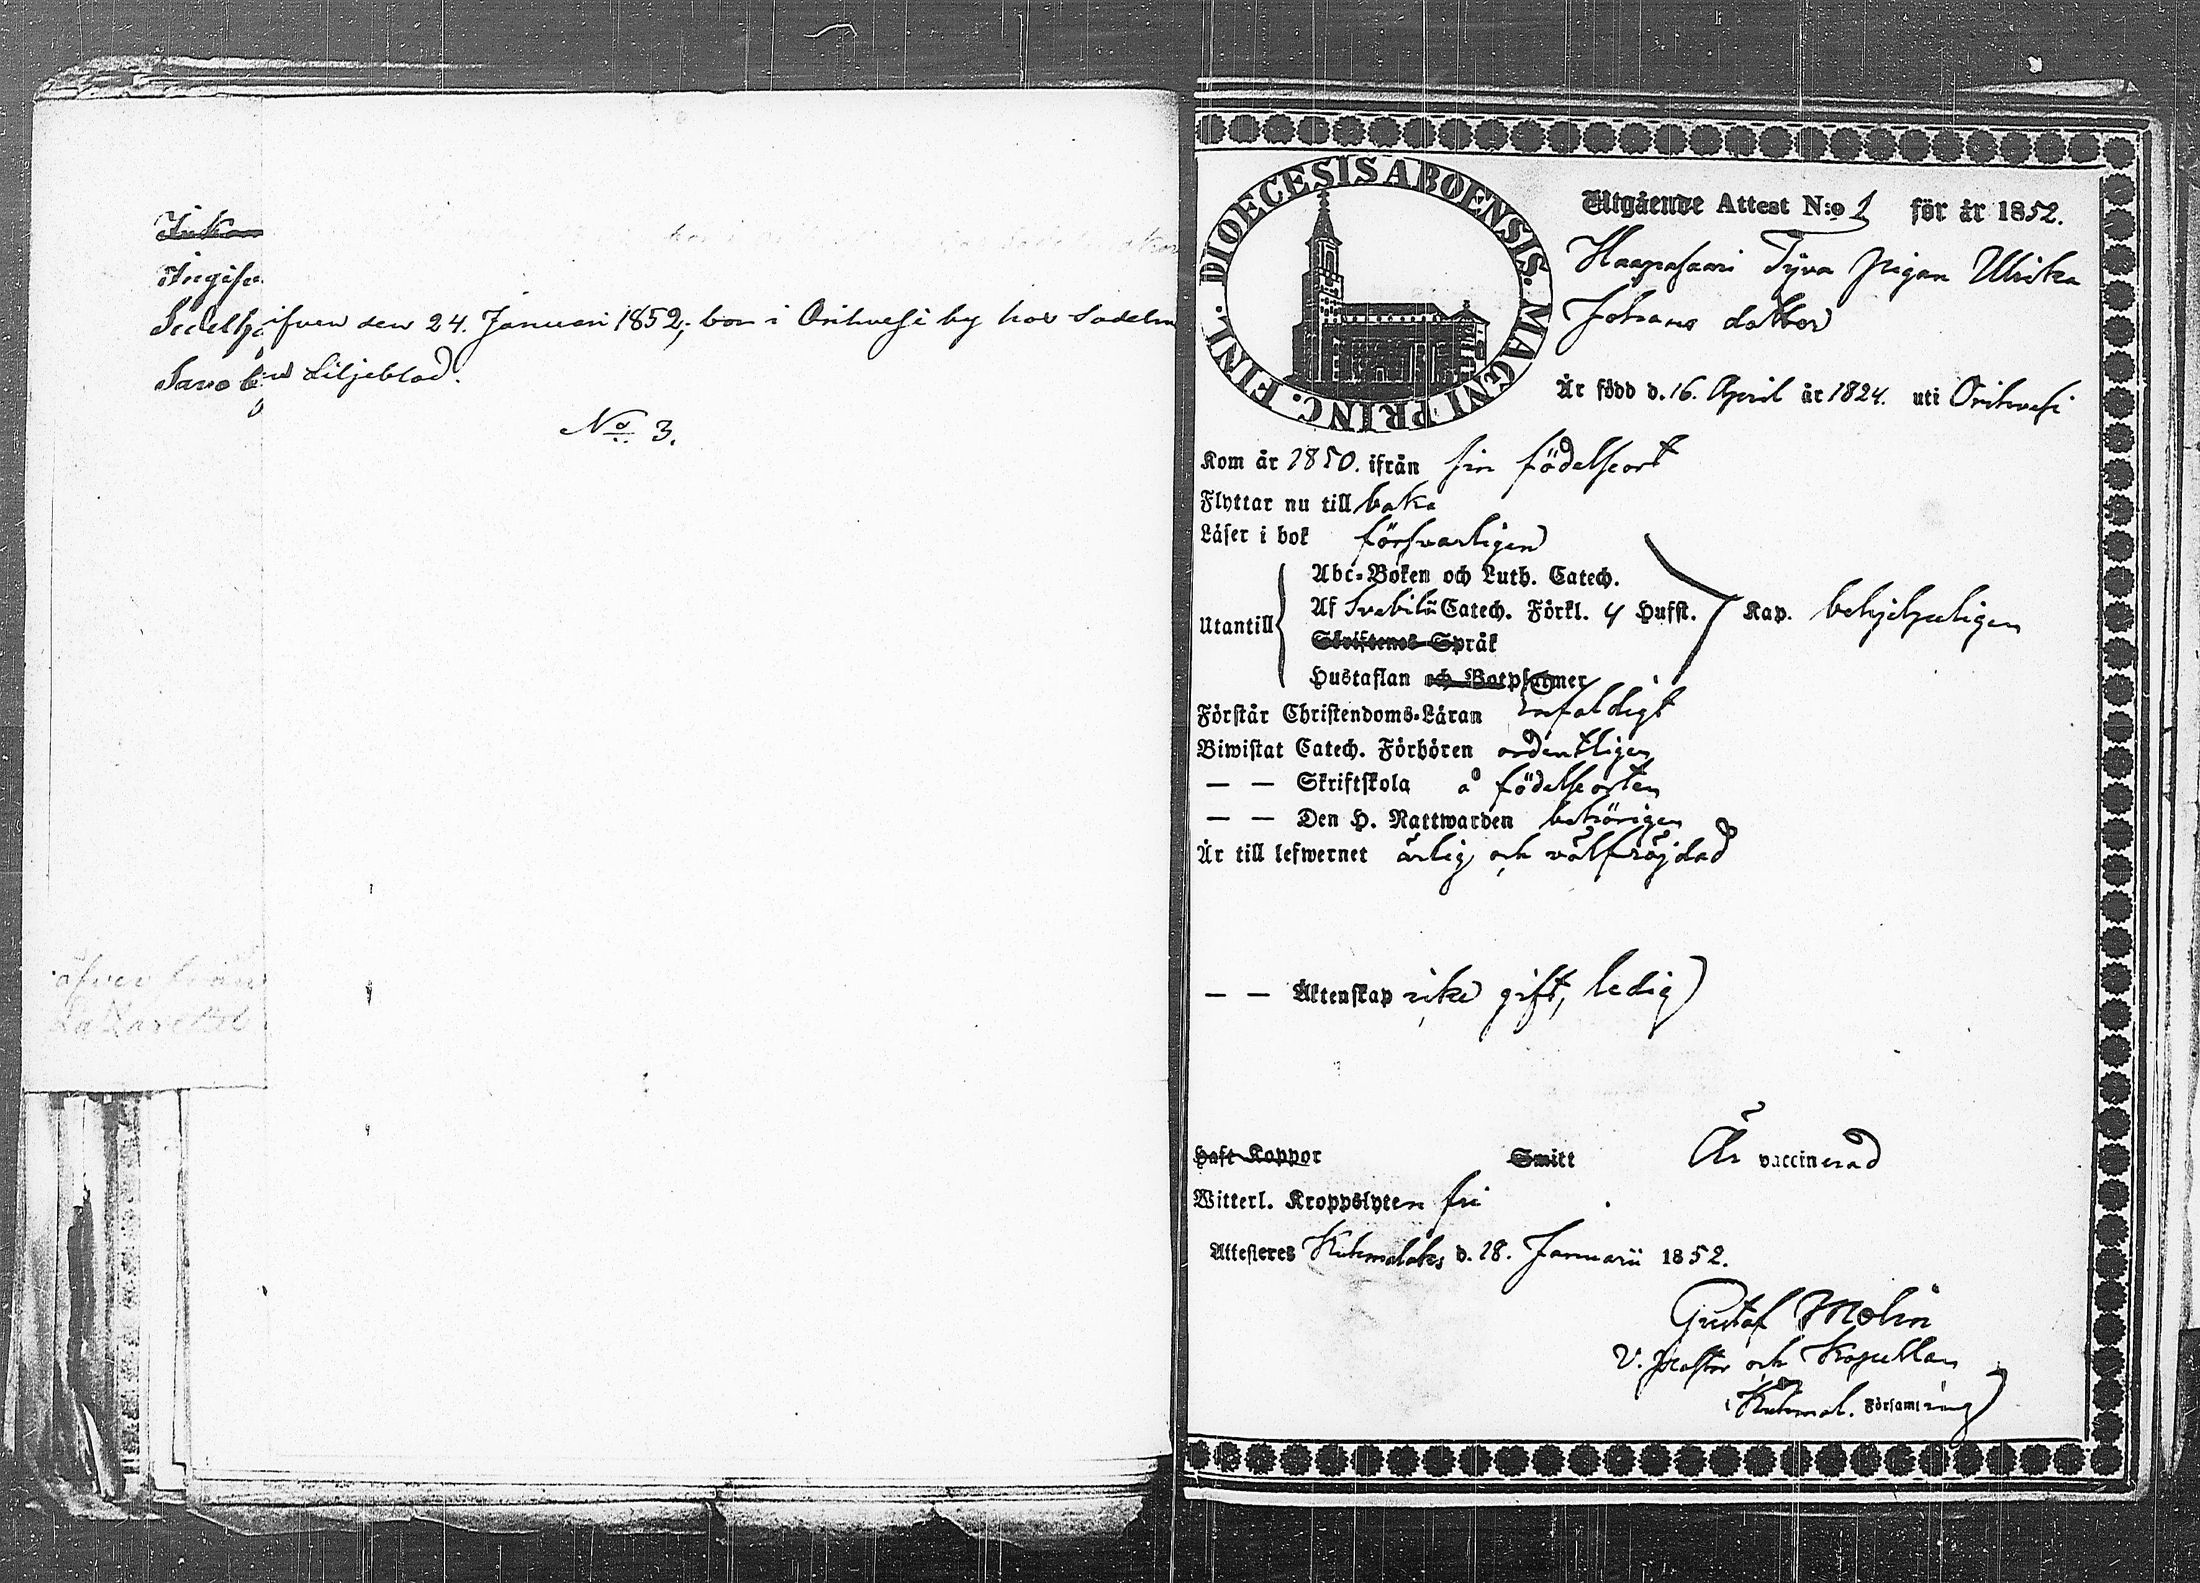 ifven den 24. Januari 1852; bor i Orihvesi by hos Sadelm
Liljeblad.
No 3.
öfver
DIOECESIS ABOENSIS. MAGNI PRINC. FINL.
Utgående Attest N:o 1 för år 1852.
Haapasaari Tyva pigan Ulrika
Johans dotter
Är född d. 16. April år 1824. uti Orihvesi
Kom år 1850. ifrån sin födelseort
Flyttar nu till baka
Läser i bok försvarligen
Abc-Boken och Luth. Catech.
Utantill Af Svebilii Catech. Förkl. 4 Hufst. Kap. behjelpeligen
Skriftenes Språk
Hustaflan och Botpsalmer
Förstår Christendoms-Läran enfaldigt
Biwistat Catech. Förhören ordentligen
— — Skriftskola å födelseorten
— — Den H. Nattwarden behörigen
Är till lefwernet ärlig och välfräjdad
— — Äktenskap icke gift, ledig
Haft Koppor Smitt Är vaccinerad
Witterl. Kroppslyten fri
Attesteres Kuhmalaks d. 18. Januarii 1852.
Gustaf Molin
V. Pastor och Kapellan
i Kuhmal. Församling